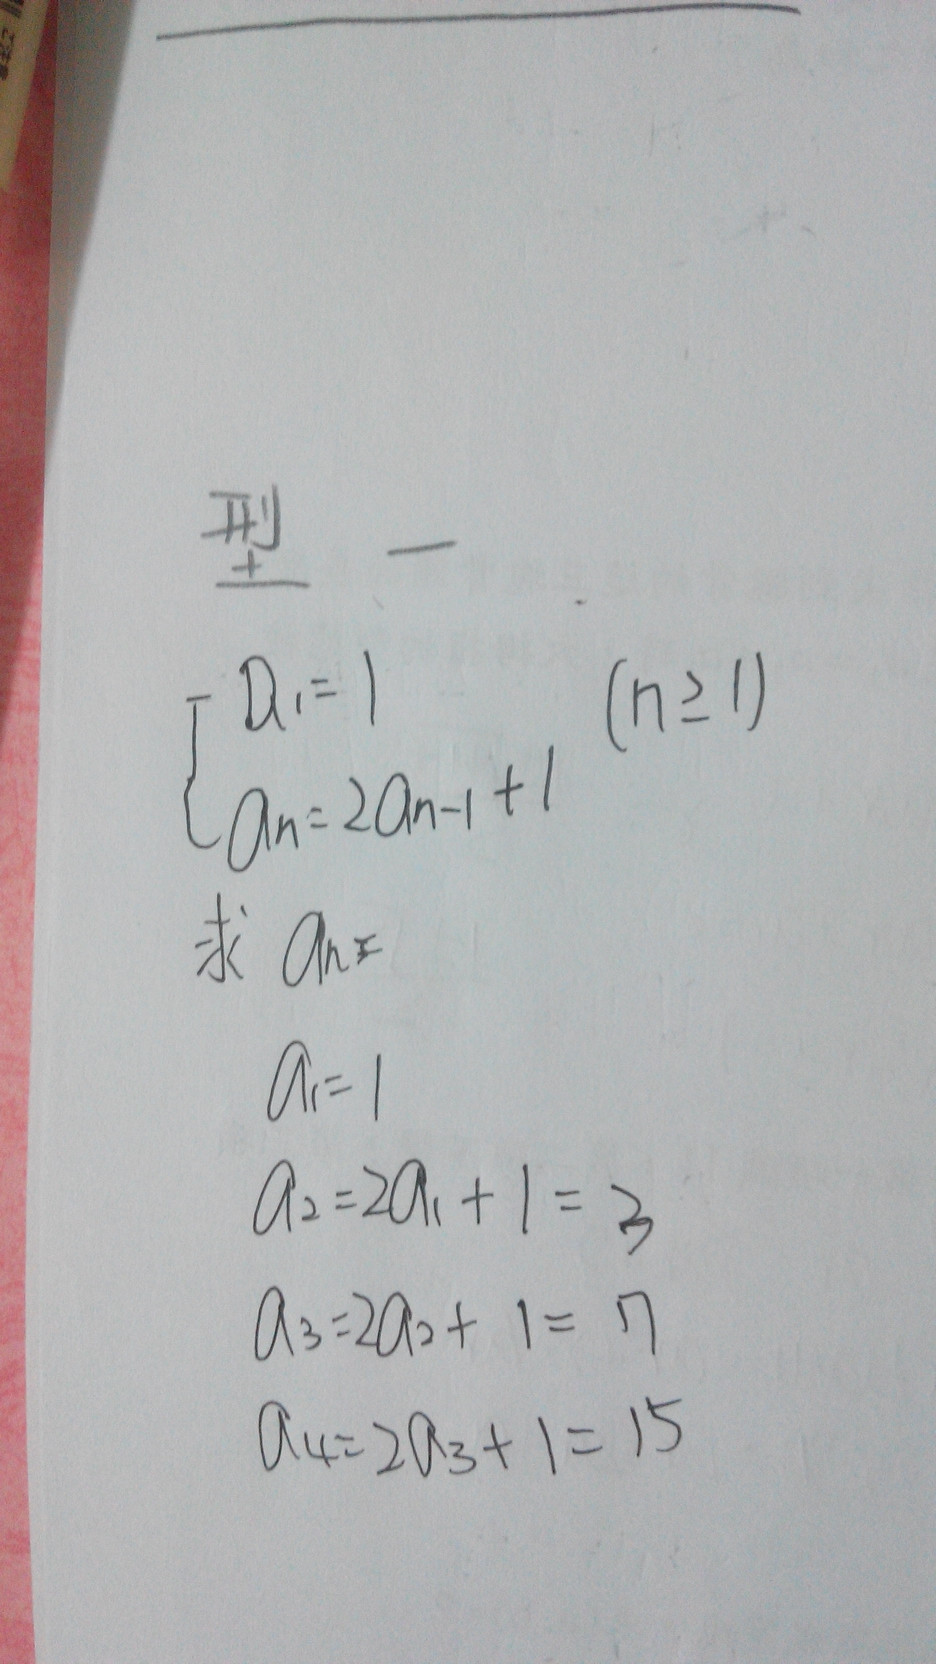 型 一
a₁=1 (n≥1)
aₙ=2aₙ₋₁+1
求 aₙ=
a₁=1
a₂=2a₁+1=3
a₃=2a₂+1=7
a₄=2a₃+1=15